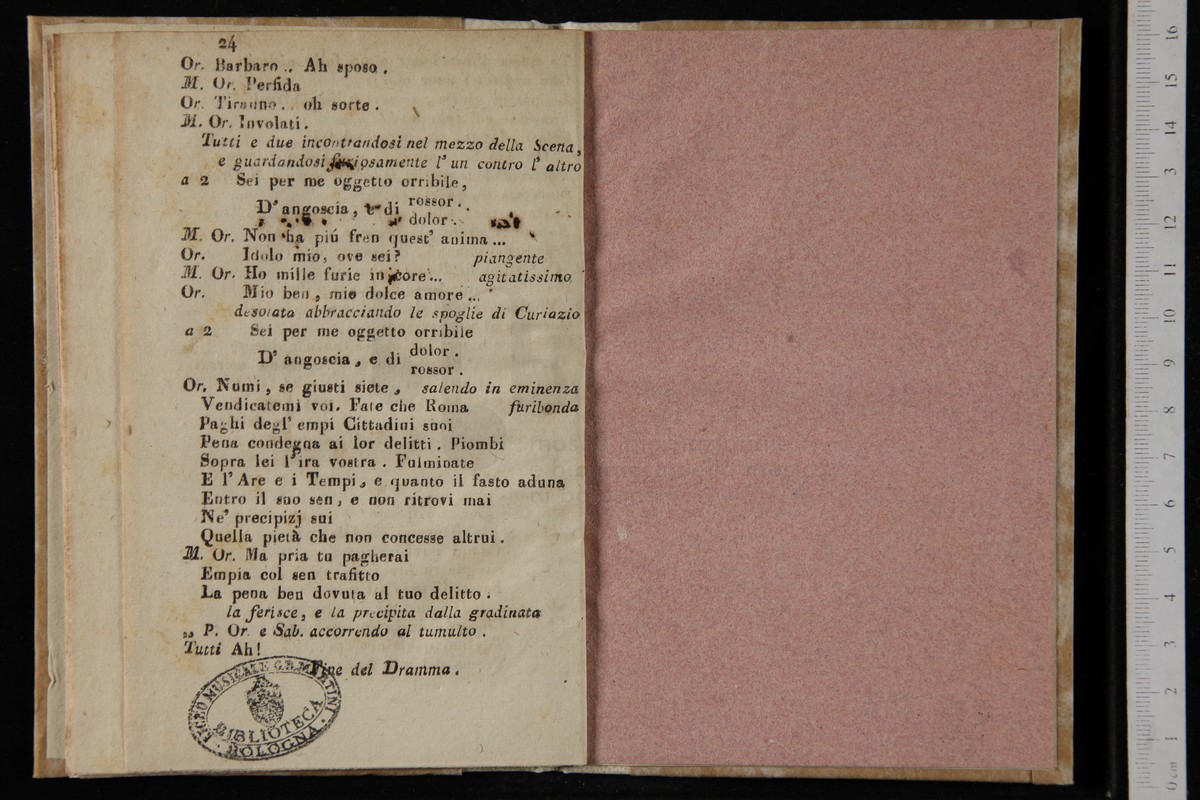 24
Or. Barbaro .. Ah sposo .
M. Or. Perfida
Or. Tiranno .. oh sorte .
M. Or. Involati .
Tutti e due incontrandosi nel mezzo della Scena,
e guardandosi furiosamente l' un contro l' altro
a 2 Sei per me oggetto orribile,
D' angoscia, e di rossor . .
dolor .
M. Or. Non ha piú fren quest' anima ...
Or. Idolo mio, ove sei? piangente
M. Or. Ho mille furie in core ... agitatissimo
Or. Mio ben, mio dolce amore ...
desolata abbracciando le spoglie di Curiazio
a 2 Sei per me oggetto orribile
D' angoscia, e di dolor .
rossor .
Or. Numi, se giusti siete, salendo in eminenza
Vendicatemi voi. Fate che Roma furibonda
Paghi degl' empi Cittadini suoi
Pena condegna ai lor delitti . Piombi
Sopra lei l' ira vostra . Fulminate
E l' Are e i Tempi, e quanto il fasto aduna
Entro il suo sen, e non ritrovi mai
Ne' precipizj sui
Quella pietà che non concesse altrui .
M. Or. Ma pria tu pagherai
Empia col sen trafitto
La pena ben dovuta al tuo delitto .
la ferisce, e la precipita dalla gradinata
,, P. Or. e Sab. accorrendo al tumulto .
Tutti Ah!
Fine del Dramma .
LICEO MUSICALE G.B. MARTINI
BIBLIOTECA
BOLOGNA
16
15
14
13
12
11
10
9
8
7
6
5
4
3
2
1
0 cm